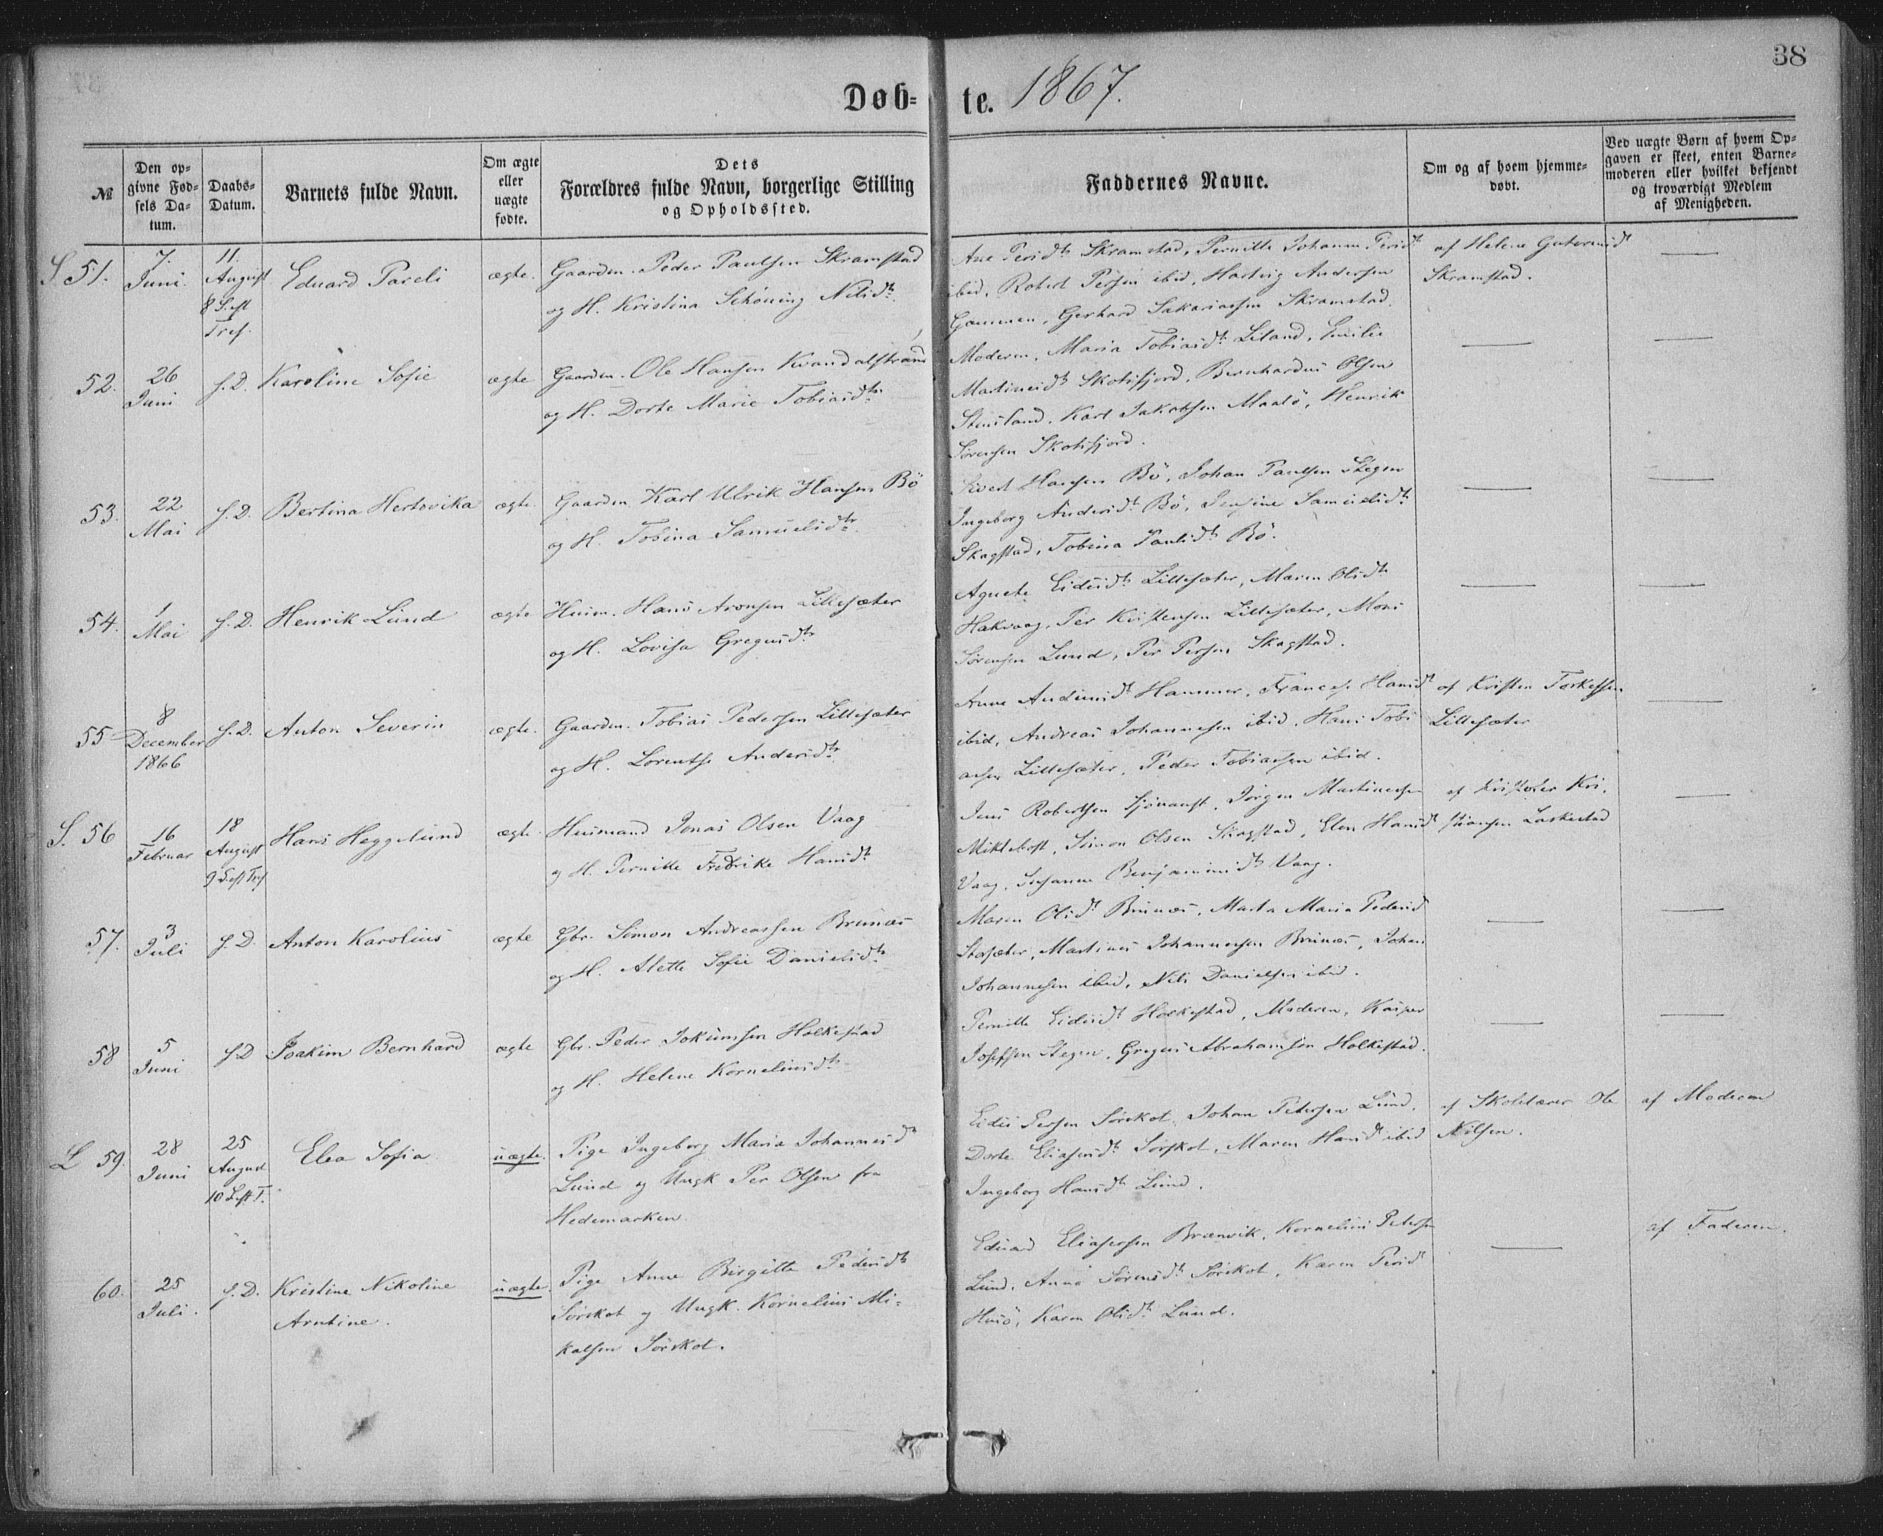 38
Døb= te. 1867.
№
Den op=
givne Fød=
sels Da=
tum.
Daabs=
Datum.
Barnets fulde Navn.
Om ægte
eller
uægte
fødte.
Dets
Forældres fulde Navn, borgerlige Stilling
og Opholdssted.
Faddernes Navne.
Om og af hvem hjemme=
døbt.
Ved uægte Børn af hvem Op=
gaven er skeet, enten Barne=
moderen eller hvilket bekjendt
og troværdigt Medlem
af Menigheden.
S. 51.
7.
Juni
11.
August
8 S. eft
Tref.
Eduard Pareli
ægte.
Gaardm. Peder Paulsen Skramstad
og H. Kristina Schøning Nilsdtr.
Ane Persdtr Skramstad, Pernille Johanna Persdtr
ibid, Robert Persen ibid, Hartvig Andersen
Gammen, Gerhard Sakariasen Skramstad.
af Helene
Skramstad.
52.
26
Juni
s. D.
Karoline Sofie
ægte
Gaardm. Ole Hansen Kvandalstrand
og H. Dorte Marie Tobiasdtr
Moderen, Maria Tobiasdtr Leland, Emilie
Martinusdtr Skotsfjord, Bernhardus Olsen
Stensland, Karl Jakobsen Maalö, Henrik
Sörensen Skotsfjord.
53.
22
Mai
s. D.
Bertina Hertevika
ægte.
Gaardm Karl Ulrik Hansen Bö
og H. Tobina Samuelsdtr.
Sivert Hansen Bö, Johan Paulsen Stegen
Ingeborg Andersdtr Bö, Samuelsdtr
Skagstad, Tobina Paulsdtr Bö.
54.
1
Mai
s. D.
Henrik Lund
ægte
Husm. Hans Aronsen Lillesæter
og H. Lovisa Gregusdtr
Agnete Eidisdtr Lillesæter, Maren Olsdtr
Hakvaag, Per Kristensen Lillesæter, Mons
Sörensen Lund, Per Persen Skagstad.
55
8
December
1866
s. D.
Anton Severin
ægte.
Gaardm. Tobias Pedersen Lillesæter
og H. Lorentse Andersdtr
Anne Hammer, Hansdtr
ibid, Andreas Johannesen ibid, Hans Tobi
asen Lillesæter, Peder Tobiassen ibid.
af Kristen Torkelsen
Lillesæter
S. 56
16
Februar
18
August
9 S. eft Tref
Hans Heggelund
ægte.
Husmand Jonas Olsen Vaag
og H. Pernille Fredrike Hansdtr
Jens Robertsen, Jörgen Martinussen
Miklebost, Simon Olsen Skagstad, Elen Hansdtr
Vaag, Susanna Benjaminsdtr Vaag.
af Kristofer Kri-
stiansen Laskestad
57.
3
Juli
s. D.
Anton Karolius
ægte
Gbr. Simon Andreassen Brunæs
og H. Alette Sofie Danielsdtr
Maren Olsdtr Brunæs, Marta Maria Pedersd
Storsæter, Martinus Johannesen Brunæs, Johan
Johannesen ibid, Nils Danielsen ibid.
58
5
Juni
s. D
Joakim Bernhard
ægte
Gbr. Peder Jokumsen Holkestad
og H. Helene Korneliusdtr
Pernille Eidisdtr Holkestad, Moderen, Kasper
Josefsen Stegen, Gregus Abrahamsen Holkestad.
L 59.
28
Juni
25
August
10 S. eft T.
Elea Sofia
uægte.
Pige Ingeborg Maria Johannesd
Lund og Ungk Per Olsen fra
Hedemarken
Eidis Persen Sörskot, Johan Petersen Lund,
Dorte Eliasersdtr Sörskot, Maren Hansdtr ibid
Ingeborg Hansdtr Lund.
af Skolelærer Ole
Nilsen.
af Moderen
60.
25
Juli
s. D.
Kristine Nikoline
Arntine.
uægte.
Pige Anne Birgitte Pedersdtr
Sörskot og Ungk. Kornelius Mi-
kalsen Sörskot.
Eduard Eliasersen Brænvik, Kornelius Petersen
Lund, Anna Sörensdtr Sörskot, Karen Persdtr
Husö, Karen Olsdtr Lund.
af Faderen.